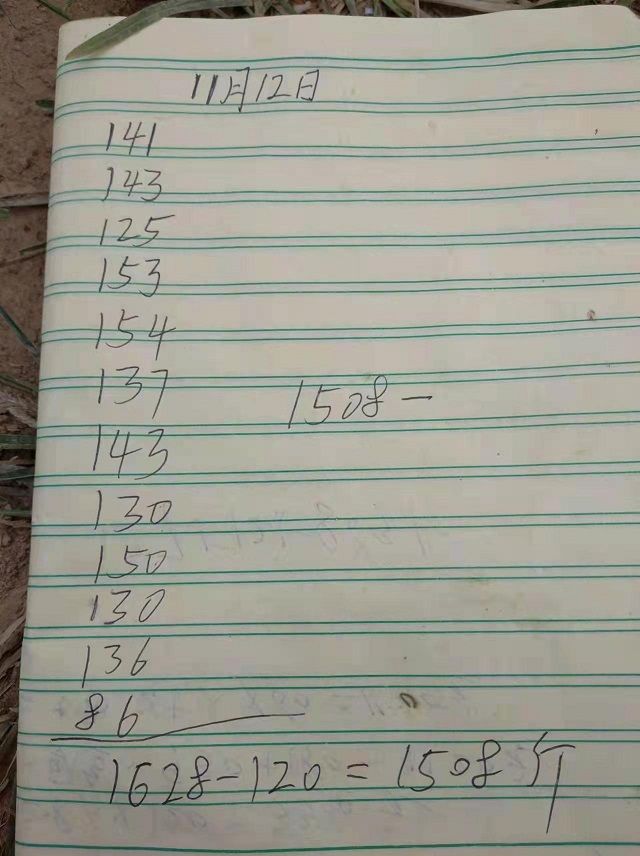 11月12日
141
143
125
153
154
137
1508-
143
130
150
130
136
86
1628-120=1508斤